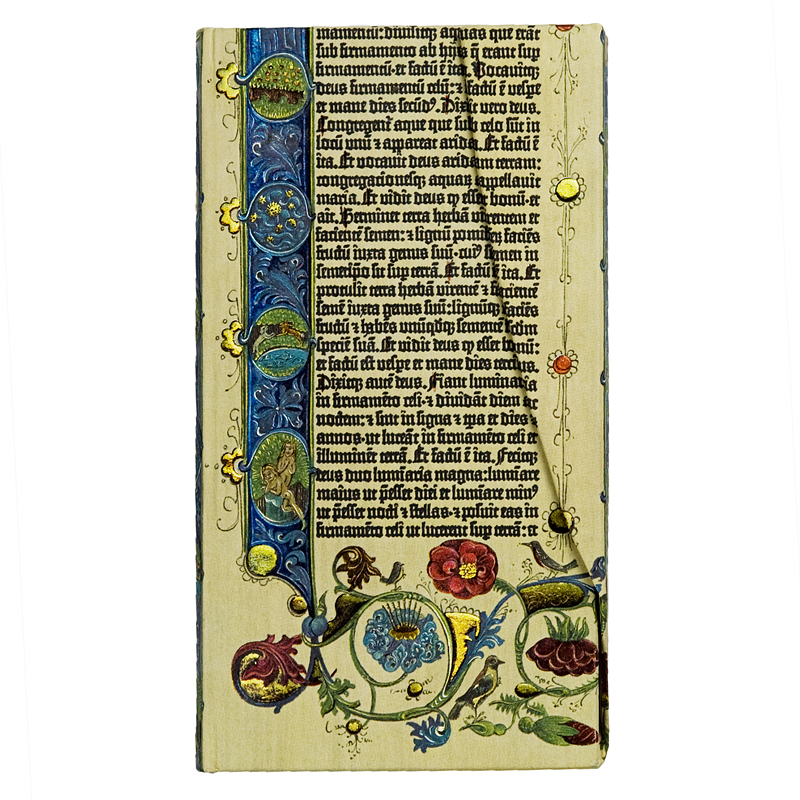 mamentū: divisitq; aquas que erāt
sub firmamento ab hijs q̄ erant sup
firmamentū· et factū ē ita. Vocavitq;
deus firmamentū celū: ⁊ factū ē vespe
et mane dies secūdꝰ. Dixit vero deus.
Congregent̄ aque que sub celo sūt in
locū unū ⁊ appareat arida. Et factū ē
ita. Et vocavit deus aridam terram:
congregacionesq; aquaꝝ appellavit
maria. Et vidit deus ꝙ esset bonū· et
ait. Germinet terra herbā virentem et
facientē semen: ⁊ lignū pomifeꝝ faciēs
fructū iuxta genus suū· cuiꝰ semen in
semetip̄o sit sup terrā. Et factū ē ita. Et
protulit terra herbā virentē ⁊ facientē
semē iuxta genus suū: lignūq; faciēs
fructū ⁊ habēs unūqdq; sementē scdm
speciē suā. Et vidit deus ꝙ esset bonū:
et factū est vespe et mane dies tercius.
Dixitq; autē deus. Fiant luminaria
in firmamēto celi· ⁊ dividāt diem ac
noctem: ⁊ sint in signa ⁊ tp̄a et dies ⁊
annos· ut luceāt in firmamēto celi et
illuminēt terrā. Et factū ē ita. Fecitq;
deus duo luminaria magna: lumīare
maius ut p̄esset diei et lumīare minꝰ
ut p̄esset nocti ⁊ stellas· ⁊ posuit eas in
firmamēto celi ut lucerent sup terrā: et